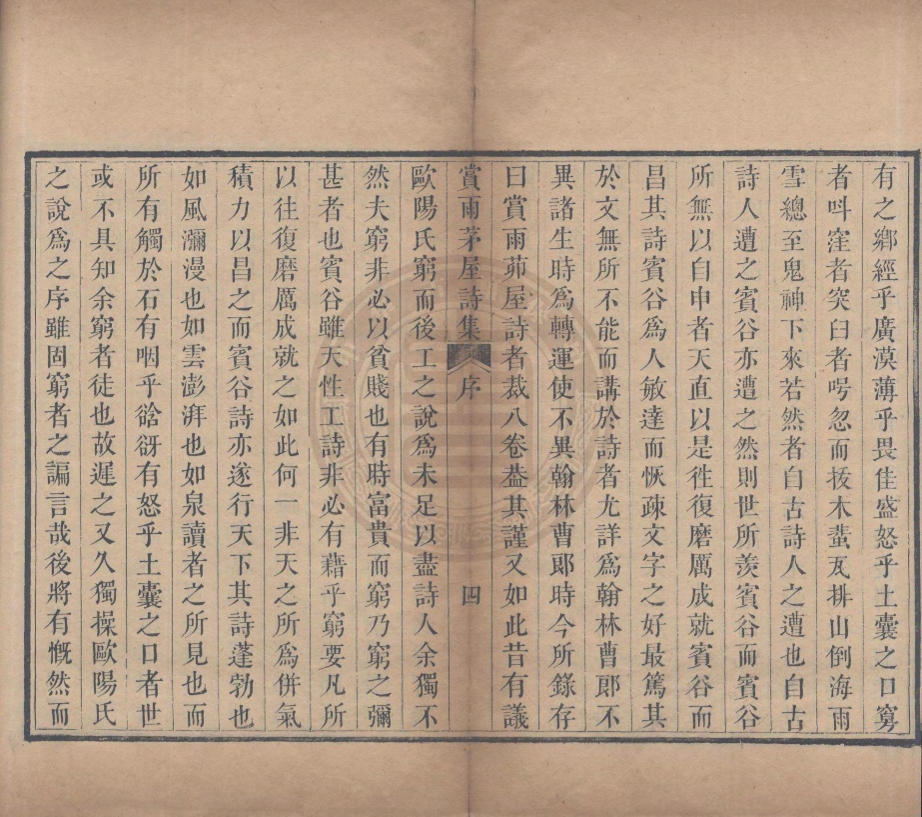 有之鄉經乎廣漠薄乎畏佳盛怒乎土囊之口窮
者呌窪者突臼者呺忽而拔木蜚瓦排山倒海雨
雪總至鬼神下來若然者自古詩人之遭也自古
詩人遭之賓谷亦遭之然則世所羨賓谷而賓谷
所無以自申者天直以是徃復磨厲成就賓谷而
昌其詩賓谷爲人敏達而恢疎文字之好最篤其
於文無所不能而講於詩者尤詳爲翰林曹郞不
異諸生時爲轉運使不異翰林曹郞時今所錄存
曰賞雨茆屋詩者裁八卷葢其謹又如此昔有議
賞雨茅屋詩集 序 四
歐陽氏窮而後工之說爲未足以盡詩人余獨不
然夫窮非必以貧賤也有時富貴而窮乃窮之彌
甚者也賓谷雖天性工詩非必有藉乎窮要凡所
以往復磨厲成就之如此何一非天之所爲併氣
積力以昌之而賓谷詩亦遂行天下其詩蓬勃也
如風瀰漫也如雲澎湃也如泉讀者之所見也而
所有觸於石有咽乎谽谺有怒乎土囊之口者世
或不具知余窮者徒也故遲之又久獨操歐陽氏
之說爲之序雖固窮者之諞言哉後將有慨然而